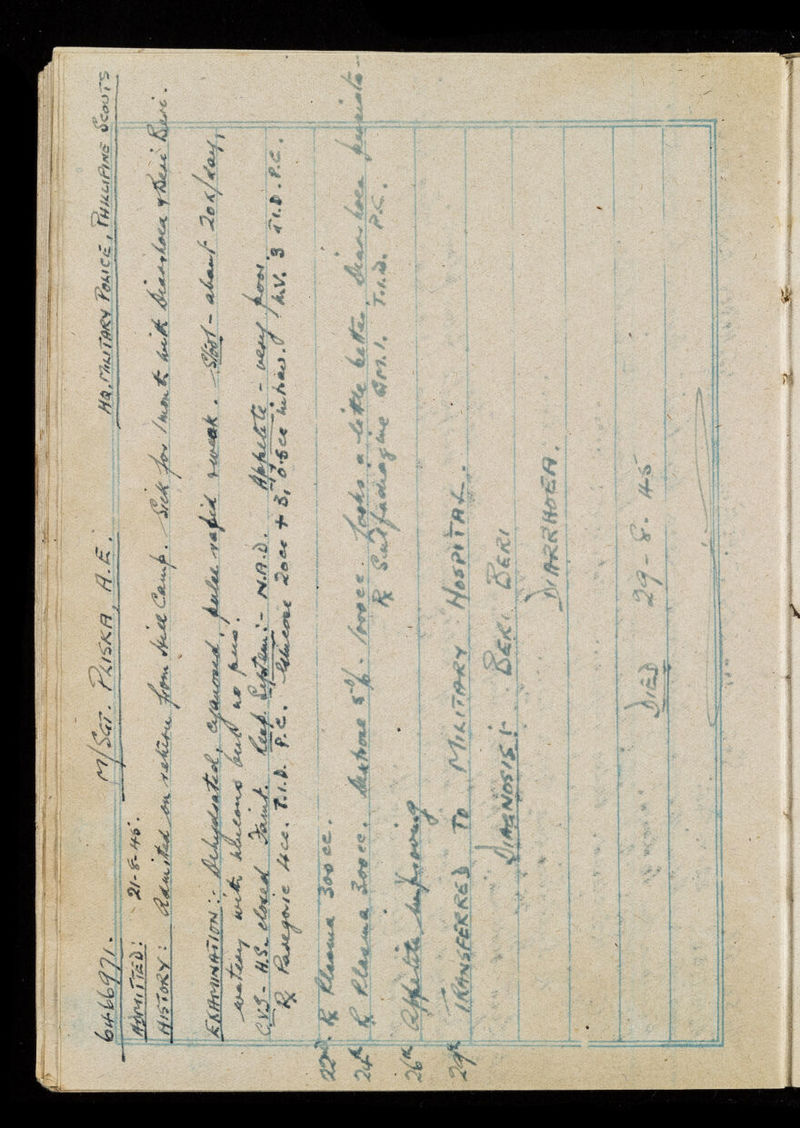 6466971. M/SGT. PLISKA, A.E. HQ. MILITARY POLICE, PHILLIPINE SCOUTS
ADMITTED: 21-8-45.
HISTORY: Admitted on return from Camp. Sick for 1 month with Diarrhoea & Beri Beri.
EXAMINATION:- Dehydrated, cyanosed, pulse rapid & weak. Stool - about 20x/day,
watery with mucous but no pus.
CVS - H.S. closed Faint. Resp System:- N.A.D. Appetite - very poor.
Rx Paregoric 4cc. T.I.D. P.C. Glucose 20cc + B, 0.5cc M.V. 3 T.I.D. P.C.
22nd. Rx Plasma 300cc.
24th Rx Plasma 300cc. Dextrose 5% - 1000cc. Looks a little better. Diarrhoea persists -
Rx Sulfadiazine T.I.D. P.C.
26th Appetite improving
29th TRANSFERRED TO MILITARY HOSPITAL.
DIAGNOSIS:- BERI BERI
DIARRHOEA.
DIED 29-8-45